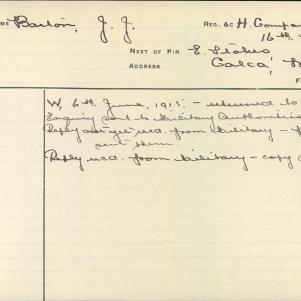 ME Barton, J. J. REG. &C H. Compa
16th
NEXT OF KIN E. Stokes
ADDRESS
W, 6th June, 1915 - returned to
Enquiry sent to Military Authorities
Reply not yet recd. from Military -
sent them.
Reply recd. from Military - copy